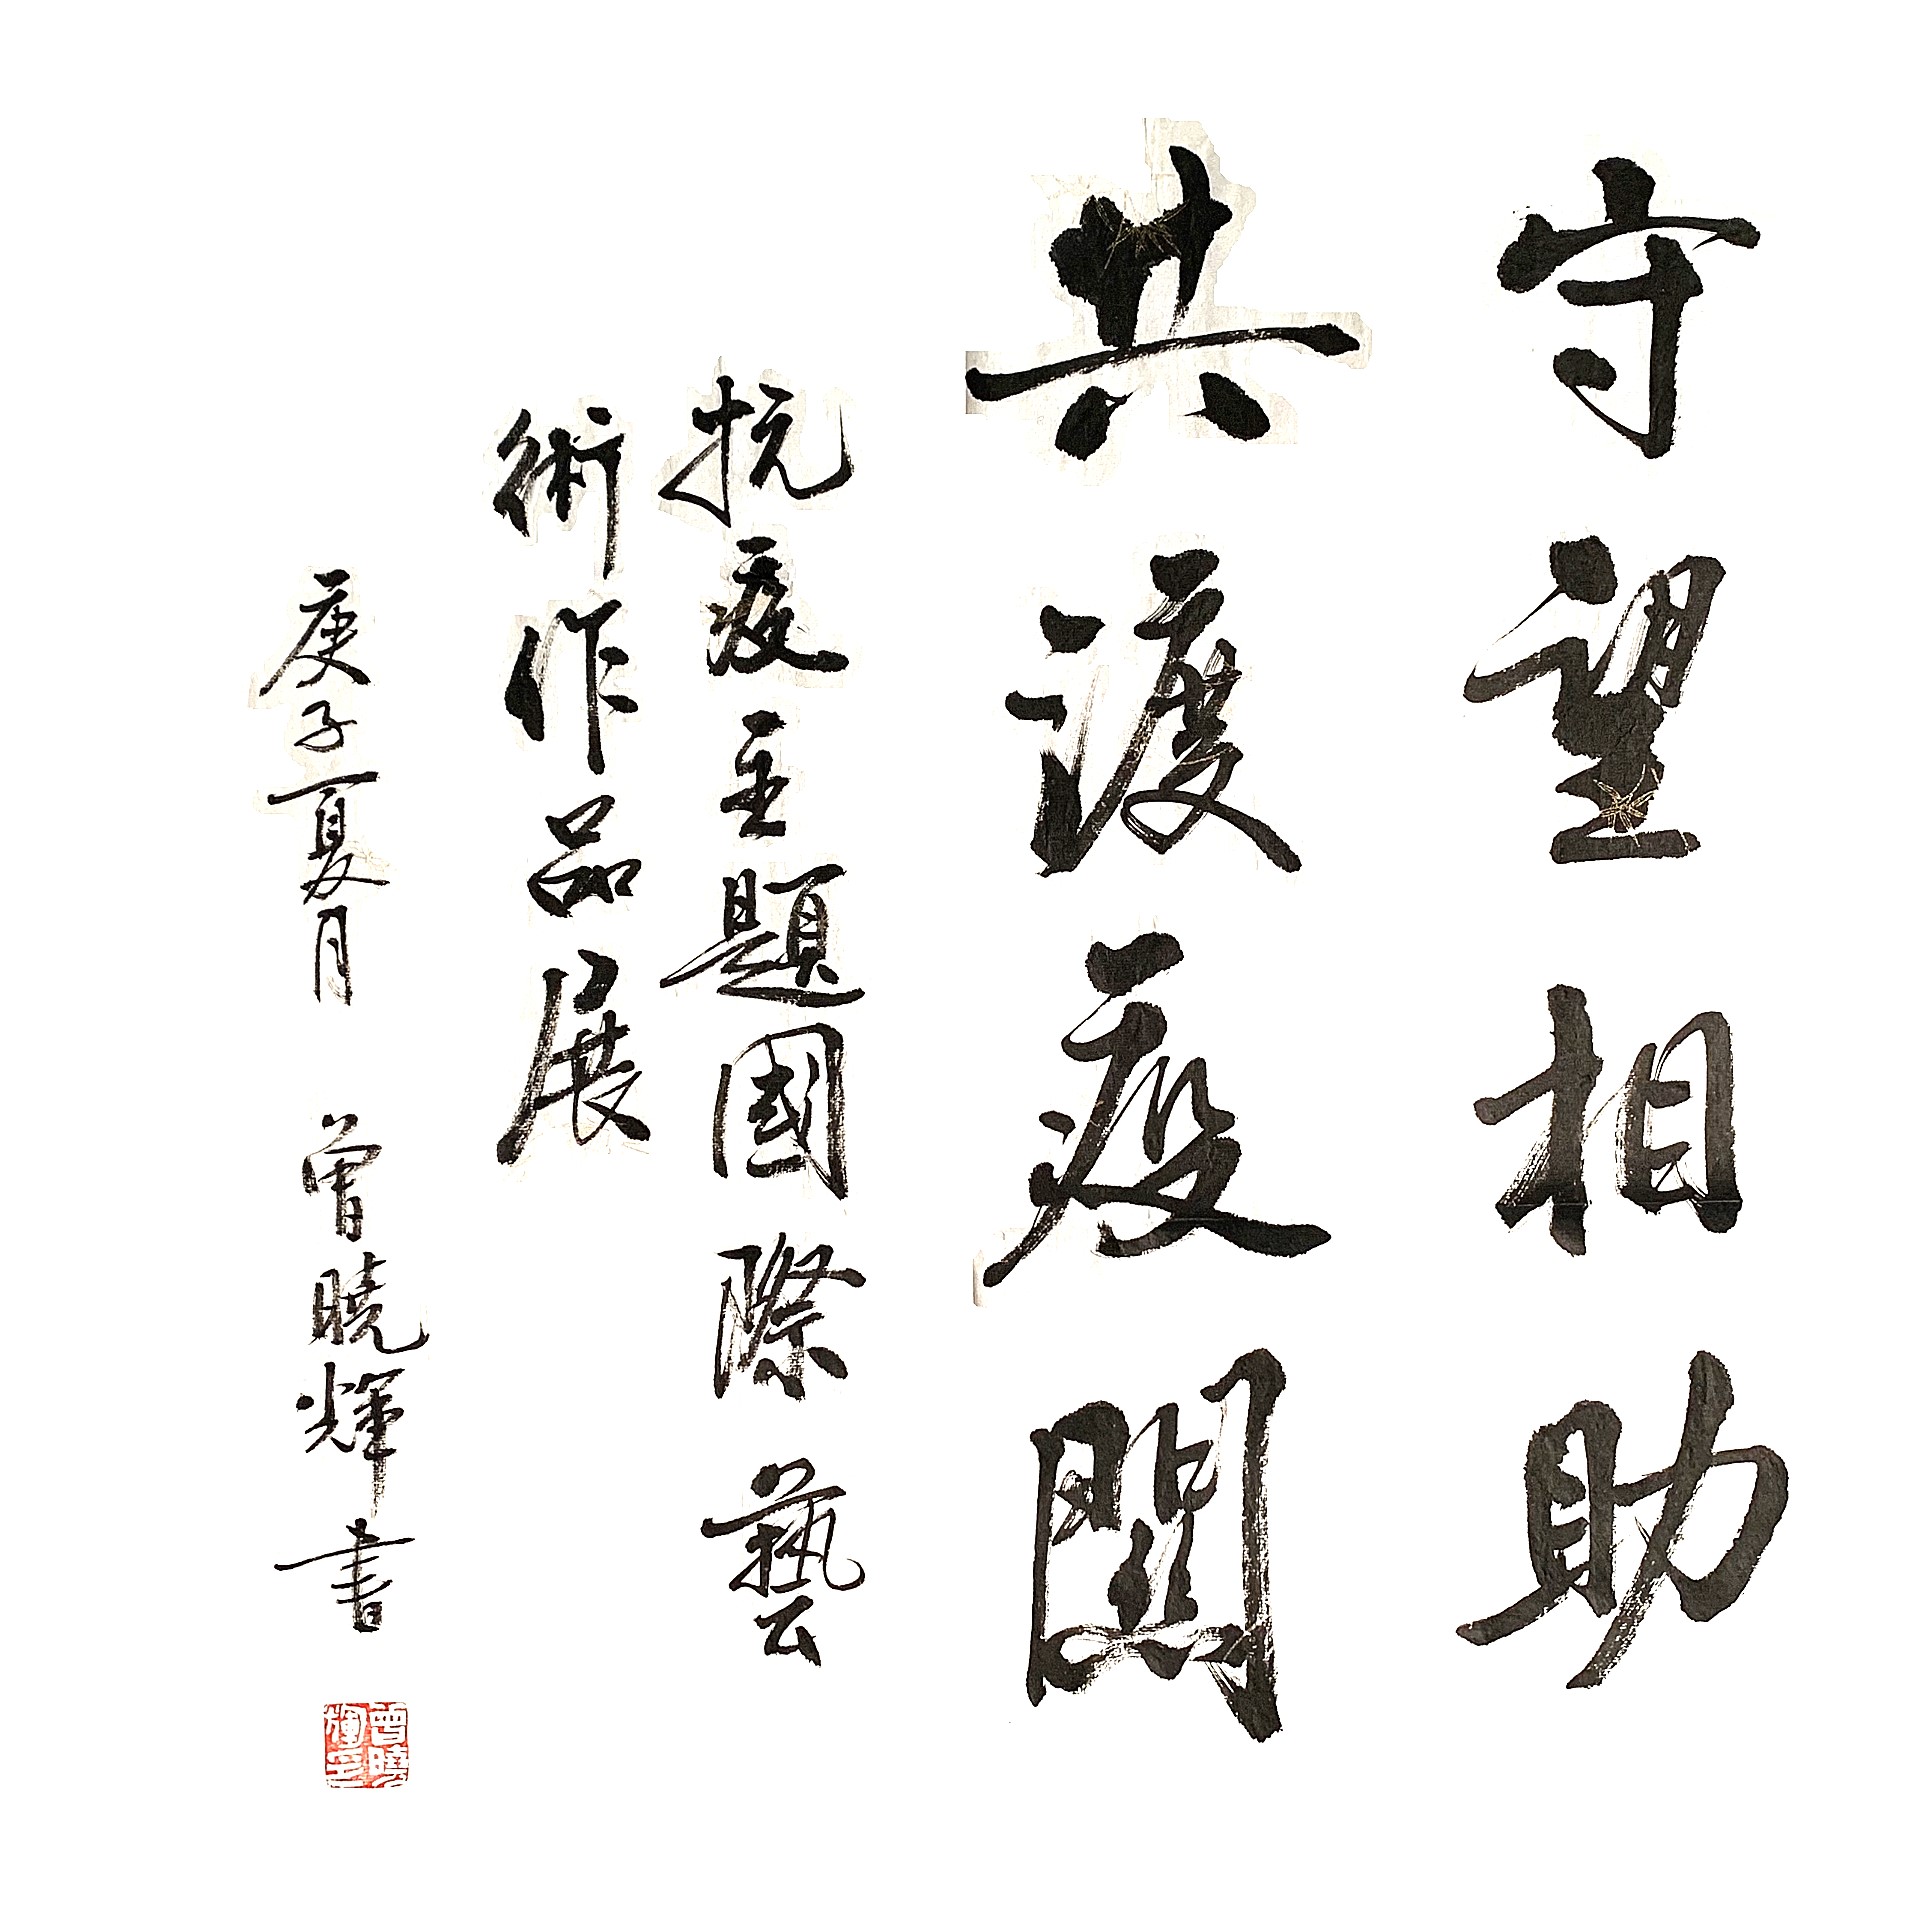 守望相助
共渡疫關
抗疫主題國際藝
術作品展
庚子夏月 曾曉輝書
曾曉輝印